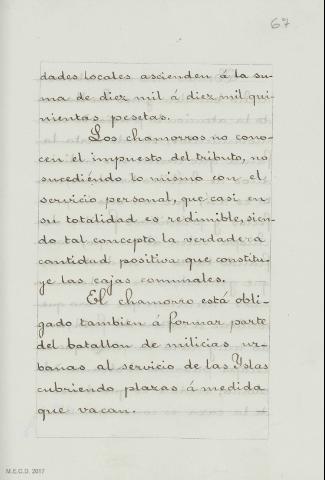 67
dades locales ascienden á la su-
ma de diez mil á diez mil qui-
nientas pesetas.
Los chamorros no cono-
cen el impuesto del tributo, no
sucediéndo lo mismo con el
servicio personal, que casi en
su totalidad es redimible, sien-
do tal concepto la verdadera
cantidad positiva que constitu-
ye las cajas comunales.
El chamorro está obli-
gado tambien á formar parte
del batallon de milicias ur-
banas al servicio de las Yslas
cubriendo plazas á medida
que vacan.
M.E.C.D. 2017